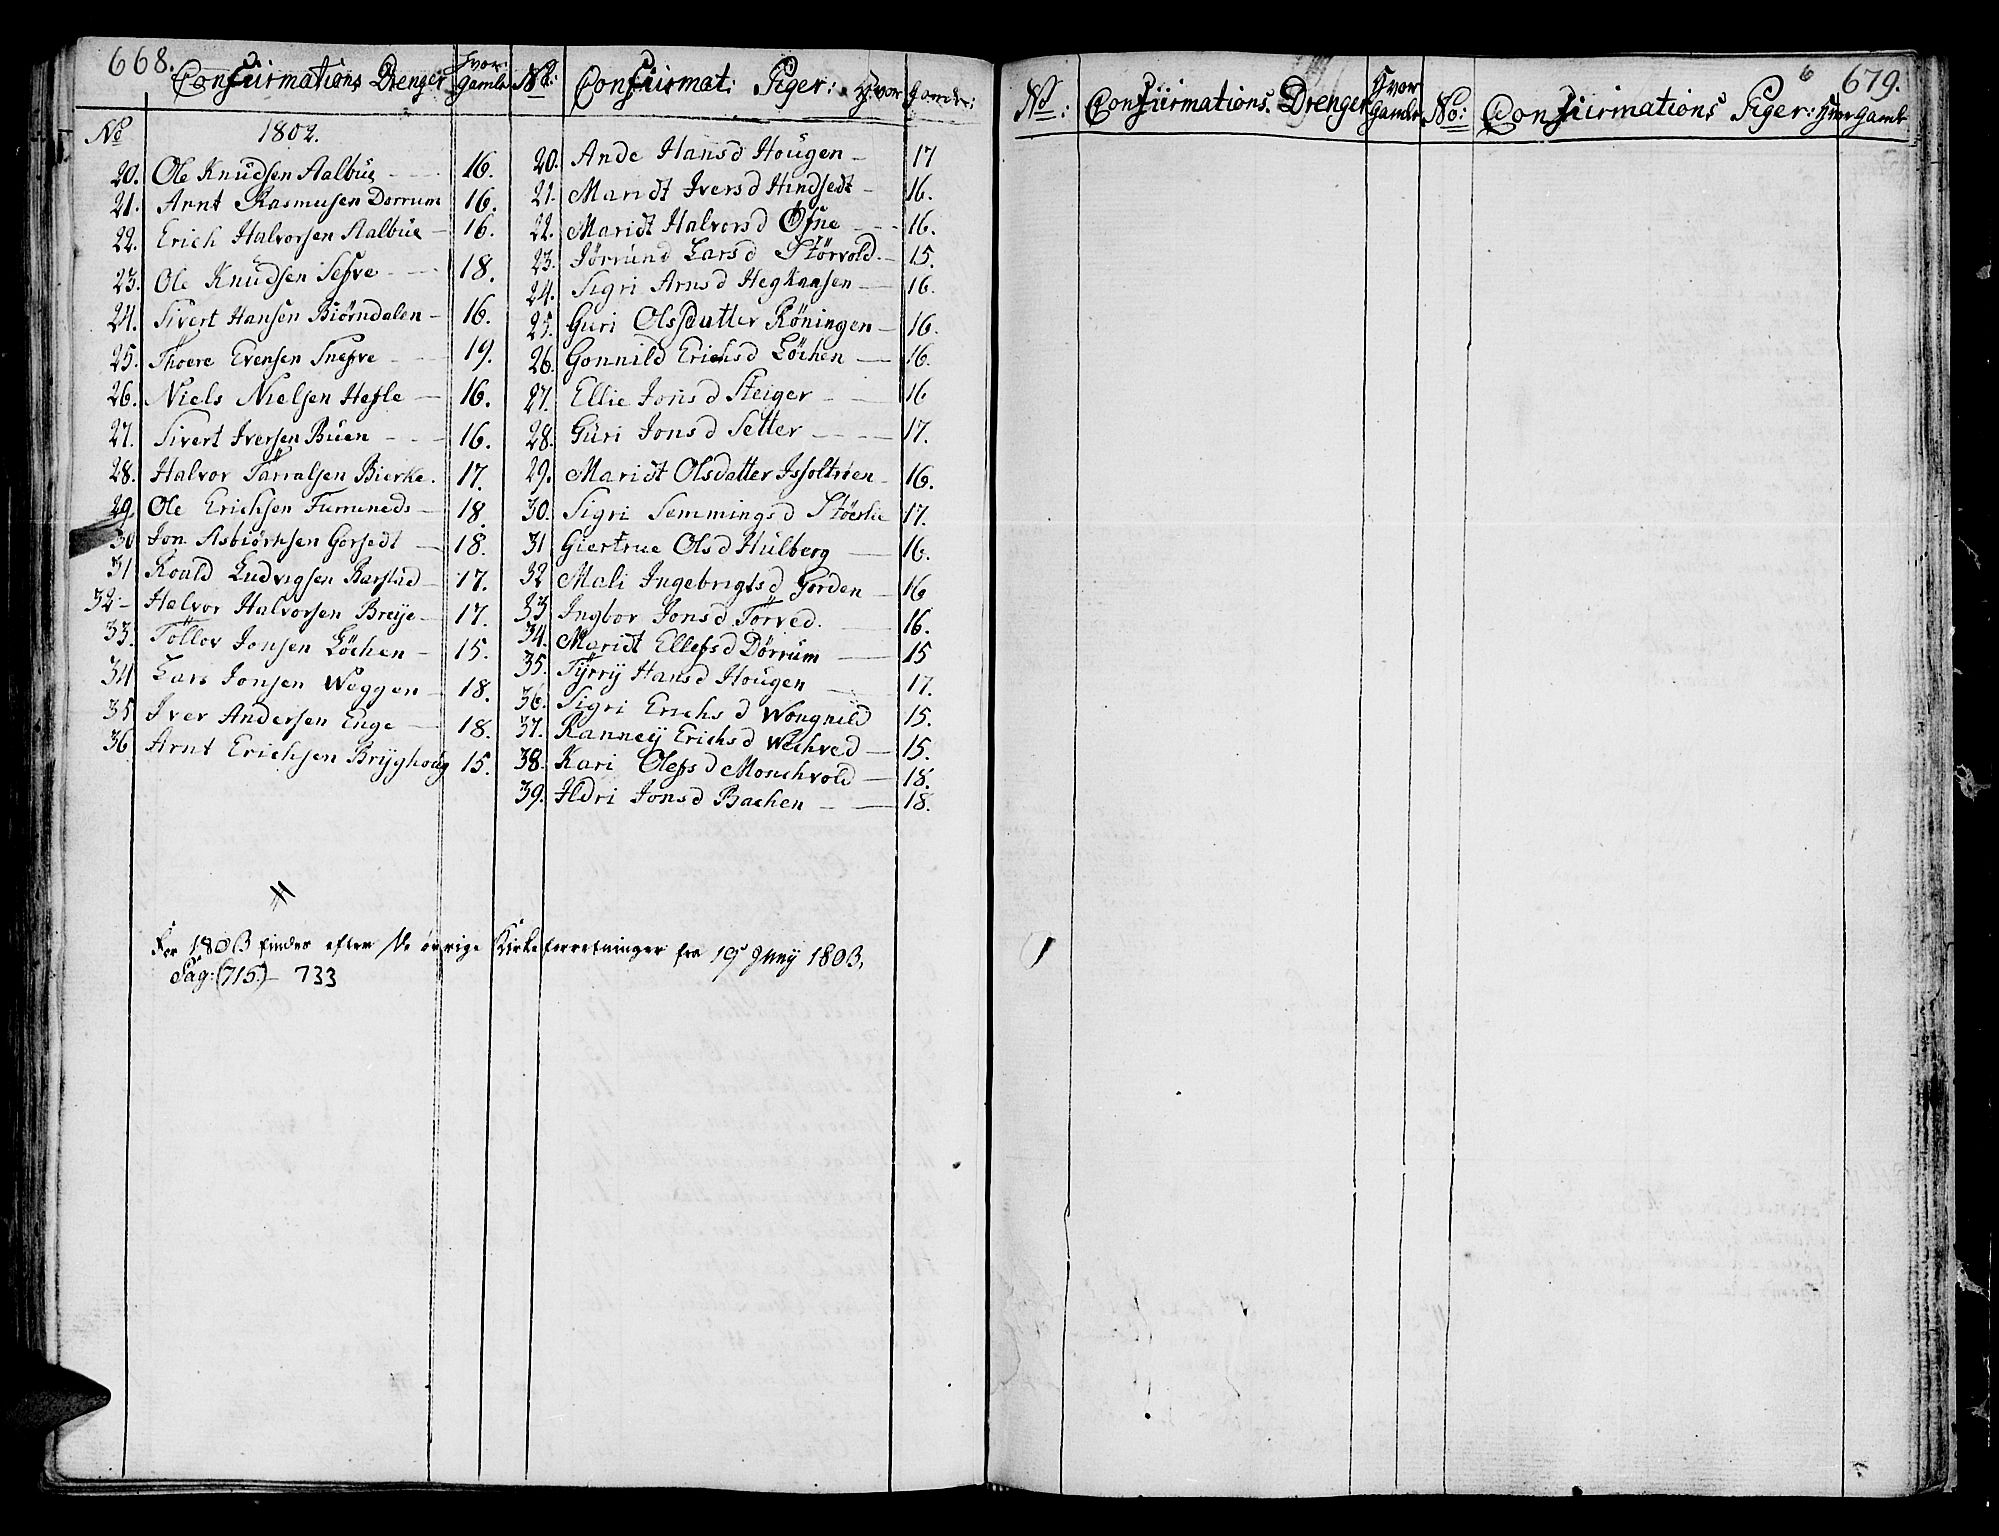 668.
Confiirmations Drenger
Hvor Gamle
No:
Confiirmat: Piger:
Hvor Gamle:
No
1802.
20. Ole Knudsen Aalbue 16.
21. Arnt Rasmusen Dorrum 16.
22. Erich Halvorsen Aalbue 16.
23. Ole Knudsen Sefve 18.
24. Sivert Hansen Biørndalen 16.
25. Thore Evensen Snefve 19.
26. Niels Nielsen Hefle 16.
27. Sivert Iversen Buen 16.
28. Halvor Tarralsen Bierke. 17.
29. Ole Erichsen Furruneds 18.
30 Jon Asbiørnsen Gorsedt 18.
31 Roald Ludvigsen Barstad 17.
32 Halvor Halvorsen Breye 17.
33. Tollov Jonsen Löchen 15.
34 Lars Jonsen Weggen 18.
35 Iver Andersen Enge 18.
36 Arnt Erichsen Bryghoug 15.
20. Ande Hansd Hougen 17
21. Maridt Iversd Hindsedt 16.
22. Maridt Halvorsd Øfne 16.
23. Jörrund Larsd Størvold 15.
24. Sigri Arnsd Hegkansen 16.
25. Guri Olsdatter Röningen 16.
26. Gonnild Erichsd Löchen 16.
27. Ellie Jonsd Steiger 16
28. Guri Jonsd Setter 17.
29. Maridt Olsdatter 16.
30. Sigri Semmingsd 17.
31 Giertrue Olsd Hulberg 16.
32 Mali Ingebrigtsd Gorden 16
33 Ingbor Jonsd Torved. 16.
34. Maridt Ellefsd Dörrum 15
35. Tÿrrÿ Hansd Hougen 17.
36. Sigri Erichsd Wongnild 15.
37. Ranney Erichsd Wechved 15.
38. Kari Olefsd Monchvold 18.
39. Ildri Jonsd Bachen 18.
For 1803 findes efter de øvrige Kirkeforretninger fra 19 Juny 1803.
Pag: (715.) - 733
679.
No:
Confiirmations. Drenger
Hvor Gamle
No:
Confiirmations Piger:
Hvor Gaml